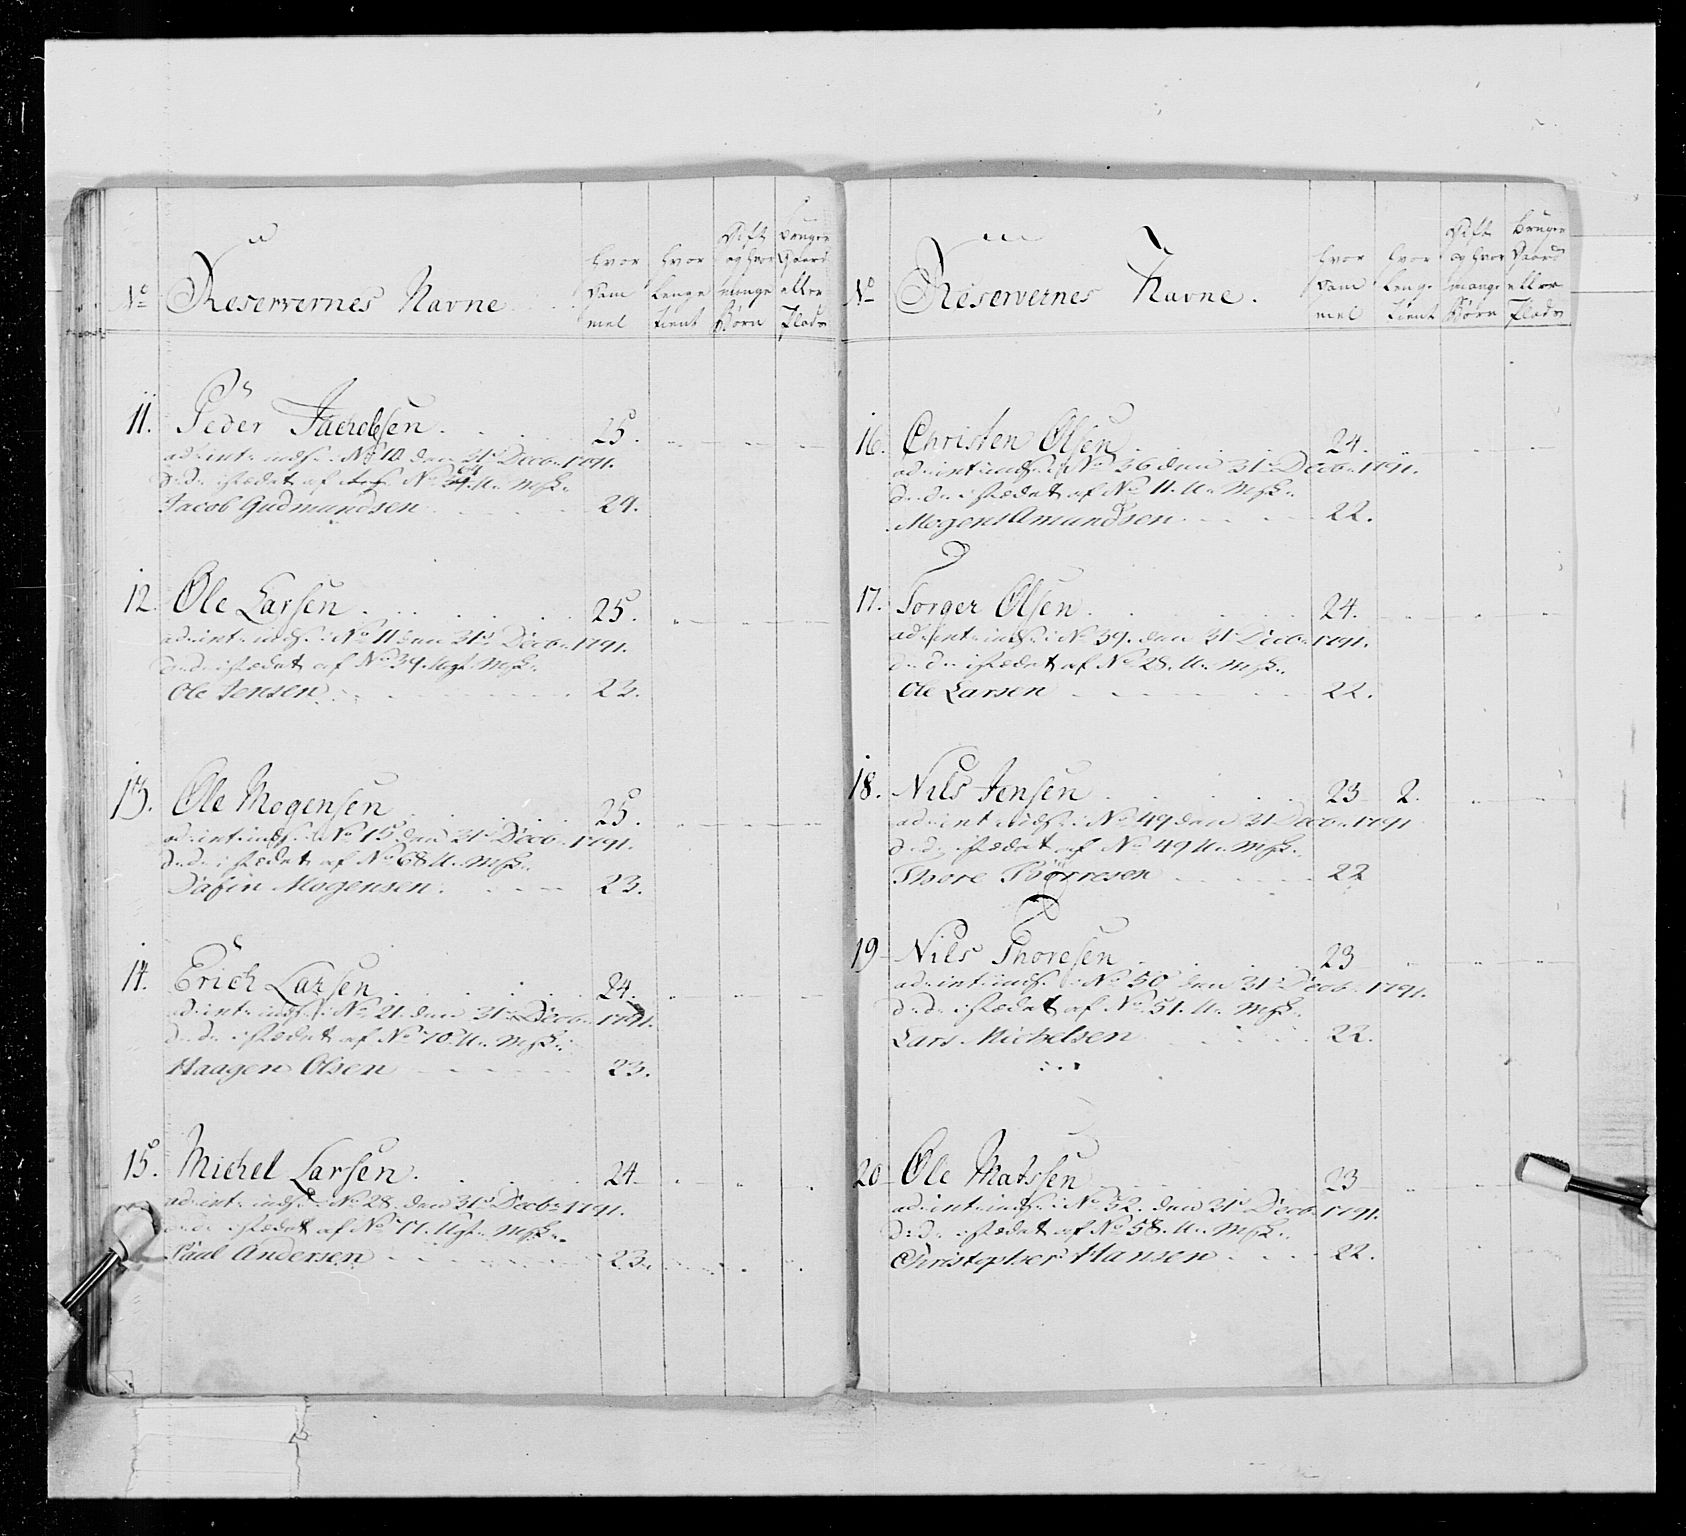 No
Reservernes Navne
hvor gam mel
hvor lenge tient
Gift og hvor mange Børn
bruger Gaard eller Plads
11. Peder Jachobsen. 25.
ad. int. inds. : No 10 den 31t Decb. 1791.
d. d. istædet af No 34. U. Msk.
Jacob Gudmundsen 24.
12. Ole Larsen 25.
ad. int. inds. : No 11 den 31t Decb. 1791.
d. d. istædet af No 39. Ugt. Msk.
Ole Jensen 23.
13. Ole Mogensen 25.
ad. int. inds. : No 15 den 31t Decb. 1791.
d. d. istædet af No 68 U. Msk.
Dafin Mogensen. 23.
14. Erich Larsen 24.
ad. int. inds. : No 21. den 31t Decb. 1791.
d. d. istædet af No 70. U. Msk.
Haagen Olsen 23.
15. Michel Larsen. 24
ad. int. inds. : No 28. den 31t Decb. 1791.
d. d. istædet af No 77. Ugt. Msk.
Paul Andersen 23.
No
Reservernes Navne.
hvor gam mel
hvor lenge tient
Gift og hvor mange Børn
bruger Gaard eller Plads
16. Christen Olsen 24.
ad. int. inds. : No 36 den 31t Decb. 1791.
d. d. istædet af No 11. U. Msk.
Mogens Amundsen 22.
17. Torger Olsen 24.
ad. int. inds. : No 39. den 31t Decb. 1791.
d. d. istædet af No 28. U. Msk.
Ole Larsen 22.
18. Nils Jensen 23 2.
ad. int. inds. : No 49 den 31 Decb. 1791
d. d. istædet af No 49 U. Msk.
Thore Børresen 22
19 Nils Thoresen 23
ad. int. inds. : No 50 den 31t Decb. 1791.
d. d. istædet af No 51. U. Msk.
Lars Michelsen 22.
20 Ole Matssen 23
ad. int. inds. : No 52. den 31t Decb. 1791.
d. d. istædet af No 58. U. Msk.
Christopher Hansen 22.